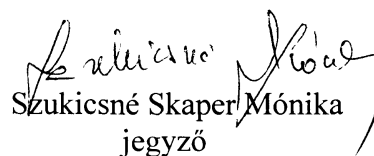 Szukicsné Skaper Mónika
jegyző